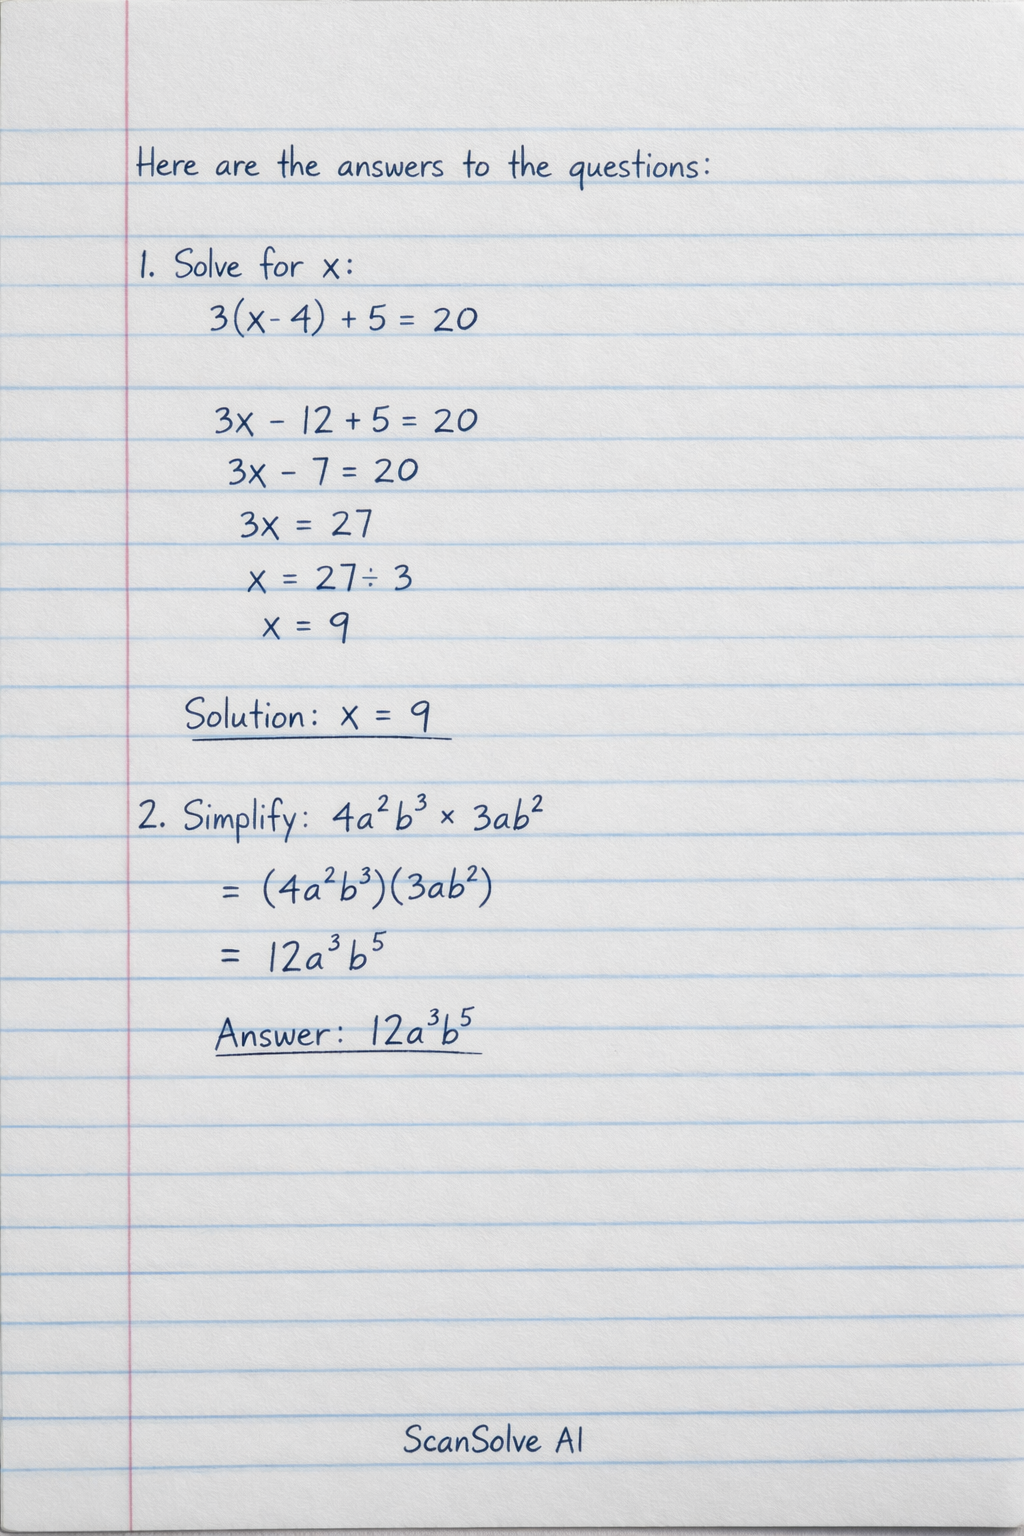 Here are the answers to the questions:
1. Solve for x:
3(x - 4) + 5 = 20
3x - 12 + 5 = 20
3x - 7 = 20
3x = 27
x = 27 ÷ 3
x = 9
Solution: x = 9
2. Simplify: 4a²b³ × 3ab²
= (4a²b³)(3ab²)
= 12a³b⁵
Answer: 12a³b⁵
ScanSolve AI